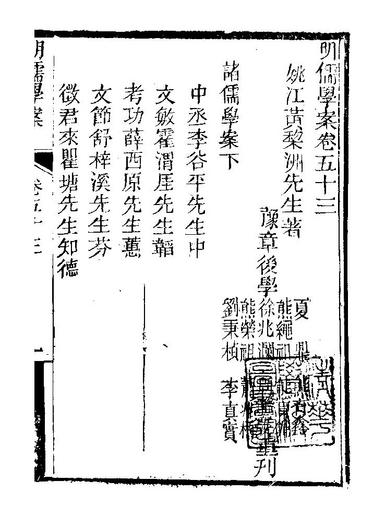 明儒學案卷五十三
姚江黃梨洲先生著
豫章後學
夏
熊繩祖
徐兆瀾
熊榮祖
劉秉楨
李真實
重刊
諸儒學案下
中丞李谷平先生中
文敏霍渭厓先生韜
考功薛西原先生蕙
文節舒梓溪先生芬
徵君來瞿塘先生知德
明儒學案
卷五十三
一